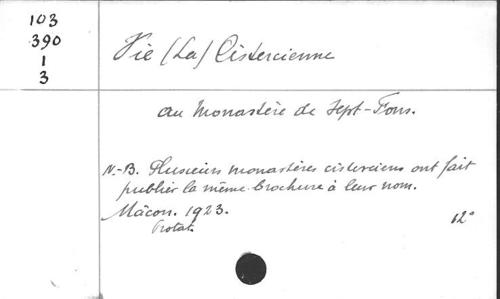 103
390
1
3
Vie (La) Cistercienne
au Monastère de Sept-Fons.
N.-B. Plusieurs monastères cisterciens ont fait
publier la même brochure à leur nom.
Mâcon. 1923. 12°
Protat.